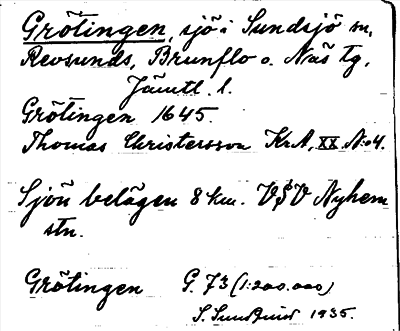 Grötingen, sjö i Sundsjö sn,
Revsunds, Brunflo o. Näs tg,
Jämtl. l.
Grötingen 1645.
Thomas Christersson KrA, XX N:o 4.
Sjön belägen 8 km. VSV Nyhem
stn.
Grötingen G. 73 (1:200.000)
S. 1935.